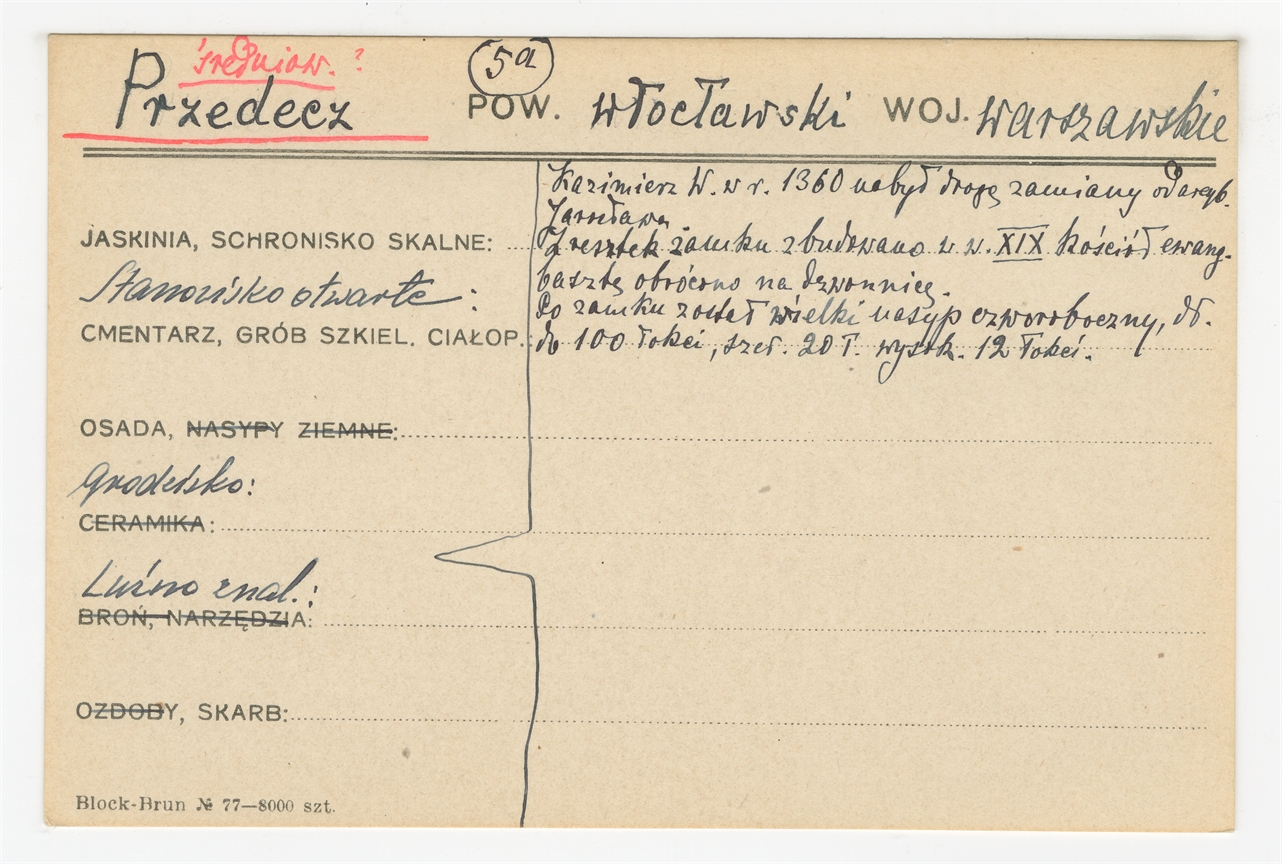 średniow. ?
5a
Przedecz POW. włocławski WOJ. warszawskie
Kazimierz W. w r. 1360 nabył drogą zamiany od arcyb.
Jarosława
JASKINIA, SCHRONISKO SKALNE:
Z resztek zamku zbudowano w w. XIX kościół ewang.
basztę obrócono na dzwonnicę.
Stanowisko otwarte :
Po zamku został wielki nasyp czworoboczny, dł.
CMENTARZ, GRÓB SZKIEL. CIAŁOP.:
do 100 łokci, szer. 20 ł. wysok. 12 łokci.
OSADA, NASYPY ZIEMNE:
Grodzisko:
CERAMIKA:
Luźno znal.:
BROŃ, NARZĘDZIA:
OZDOBY, SKARB:
Block-Brun № 77—8000 szt.